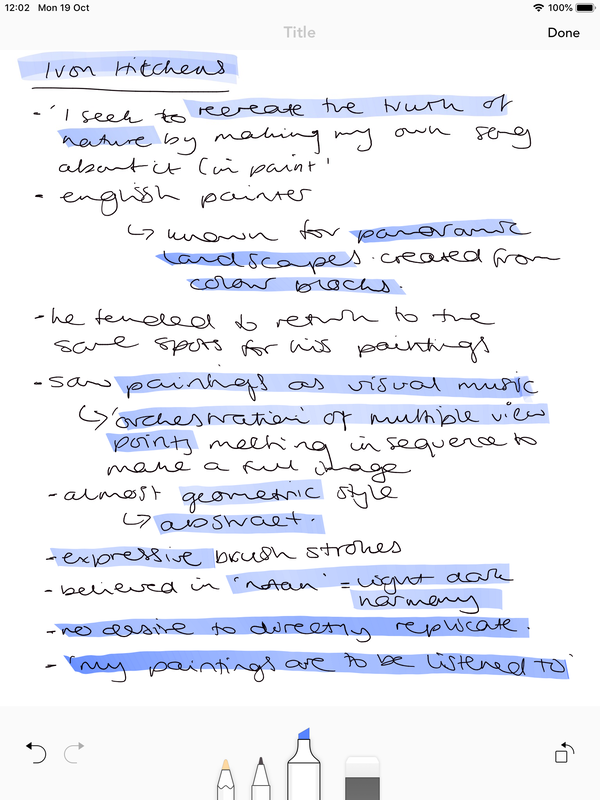 12:02 Mon 19 Oct 100%
Title Done
Ivon Hitchens
- 'I seek to recreate the truth of
nature by making my own song
about it (in paint'
- english painter
↳ known for panoramic
landscapes. created from
colour blocks.
- he tended to return to the
same spots for his paintings
- saw paintings as visual music
↳ 'orchestration' of multiple view
points melting in sequence to
make a full image
- almost geometric style
↳ abstract.
- expressive brush strokes
- believed in 'notan' = light dark
harmony
- no desire to directly replicate.
- 'my paintings are to be listened to'